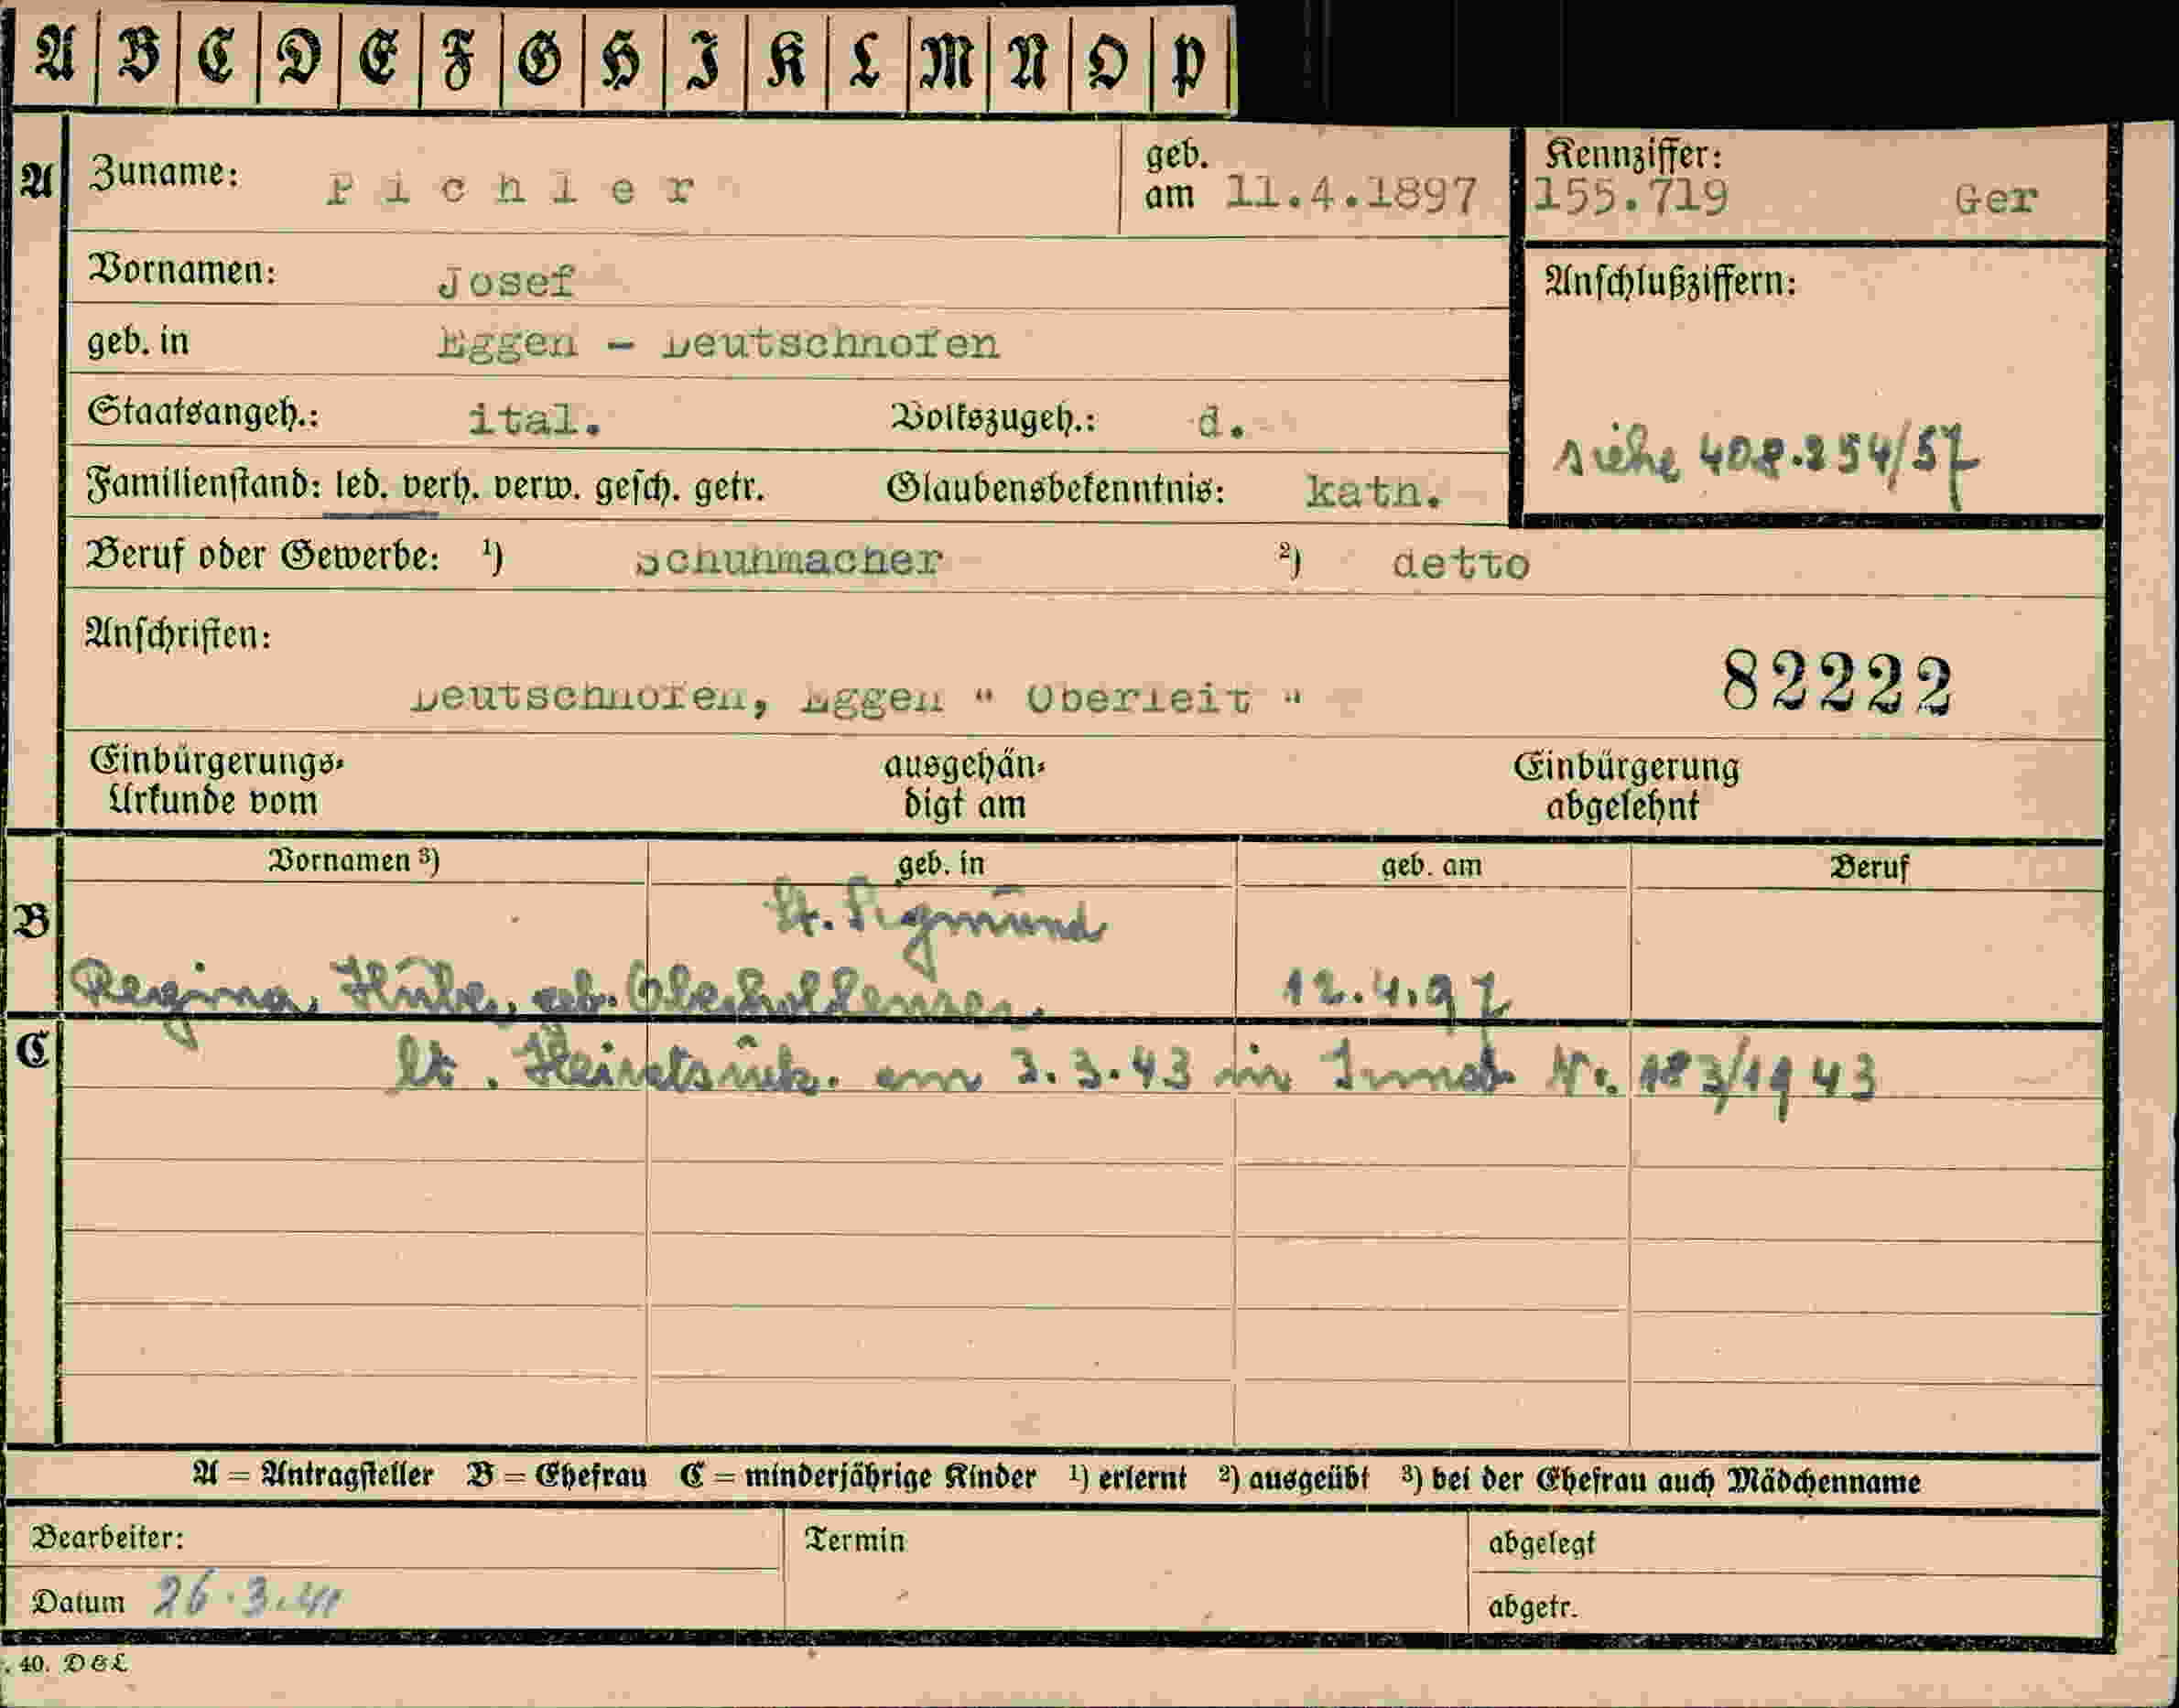 A B C D E F G H I K L M N O P
A Zuname: Pichler geb. am 11.4.1897 Kennziffer: 155.719 Ger
Vornamen: Josef Anschlußziffern:
geb. in Eggen - Deutschnofen
Staatsangeh.: ital. Volkszugeh.: d.
siehe 408.254/57
Familienstand: led. verh. verw. gesch. getr. Glaubensbekenntnis: kath.
Beruf oder Gewerbe: ¹) Schuhmacher ²) detto
Anschriften:
Deutschnofen, Eggen " Oberleit " 82222
Einbürgerungs- Urkunde vom ausgehän- digt am Einbürgerung abgelehnt
Vornamen ³) geb. in geb. am Beruf
B St. Sigmund
Regina, geb. 12.4.97
C lt. am 3.3.43 in Nr. 183/1943
A = Antragsteller B = Ehefrau C = minderjährige Kinder ¹) erlernt ²) ausgeübt ³) bei der Ehefrau auch Mädchenname
Bearbeiter: Termin abgelegt
Datum 26.3.41 abgetr.
. 40. D&L